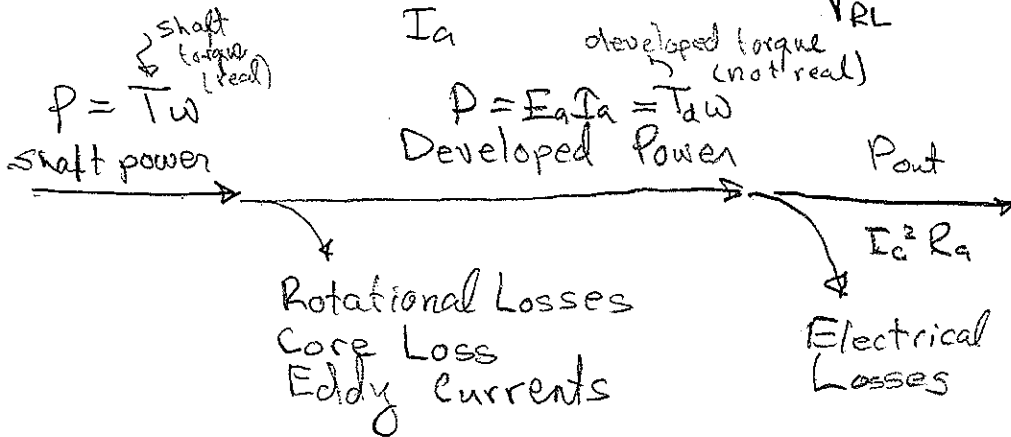 Ia
RL
shaft
torque
(real)
developed torque
(not real)
P = Tω
P = EaIa = Tdω
shaft power
Developed Power
Pout
Ia² Ra
Rotational Losses
Core Loss
Eddy Currents
Electrical
Losses